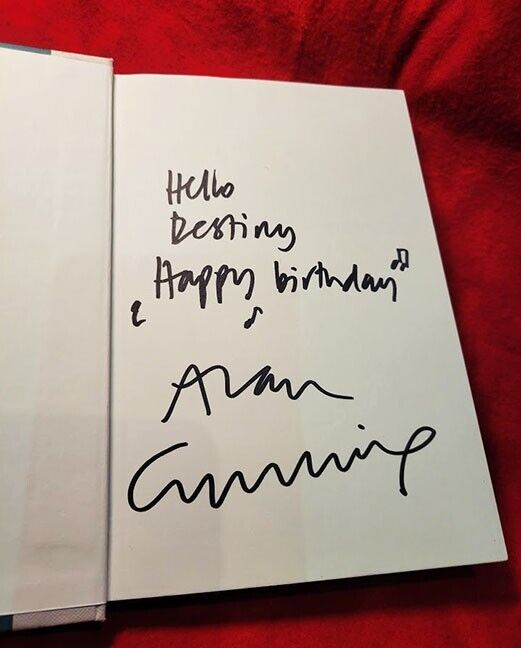 Hello
Destiny
Happy birthday
Alan
Cumming